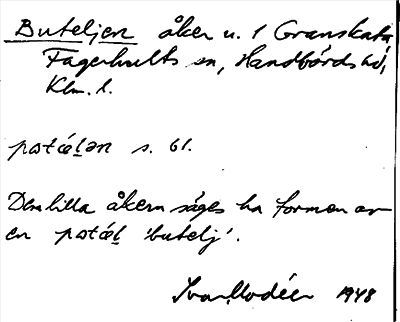 Buteljen åker u. 1 Granskata
Fagerhults sn, Handbörds hd,
Klm. l.
pɔtǽlən s. 61.
Den lilla åkern säges ha formen av
en pɔtǽl 'butelj'.
Ivar Modéer 1948